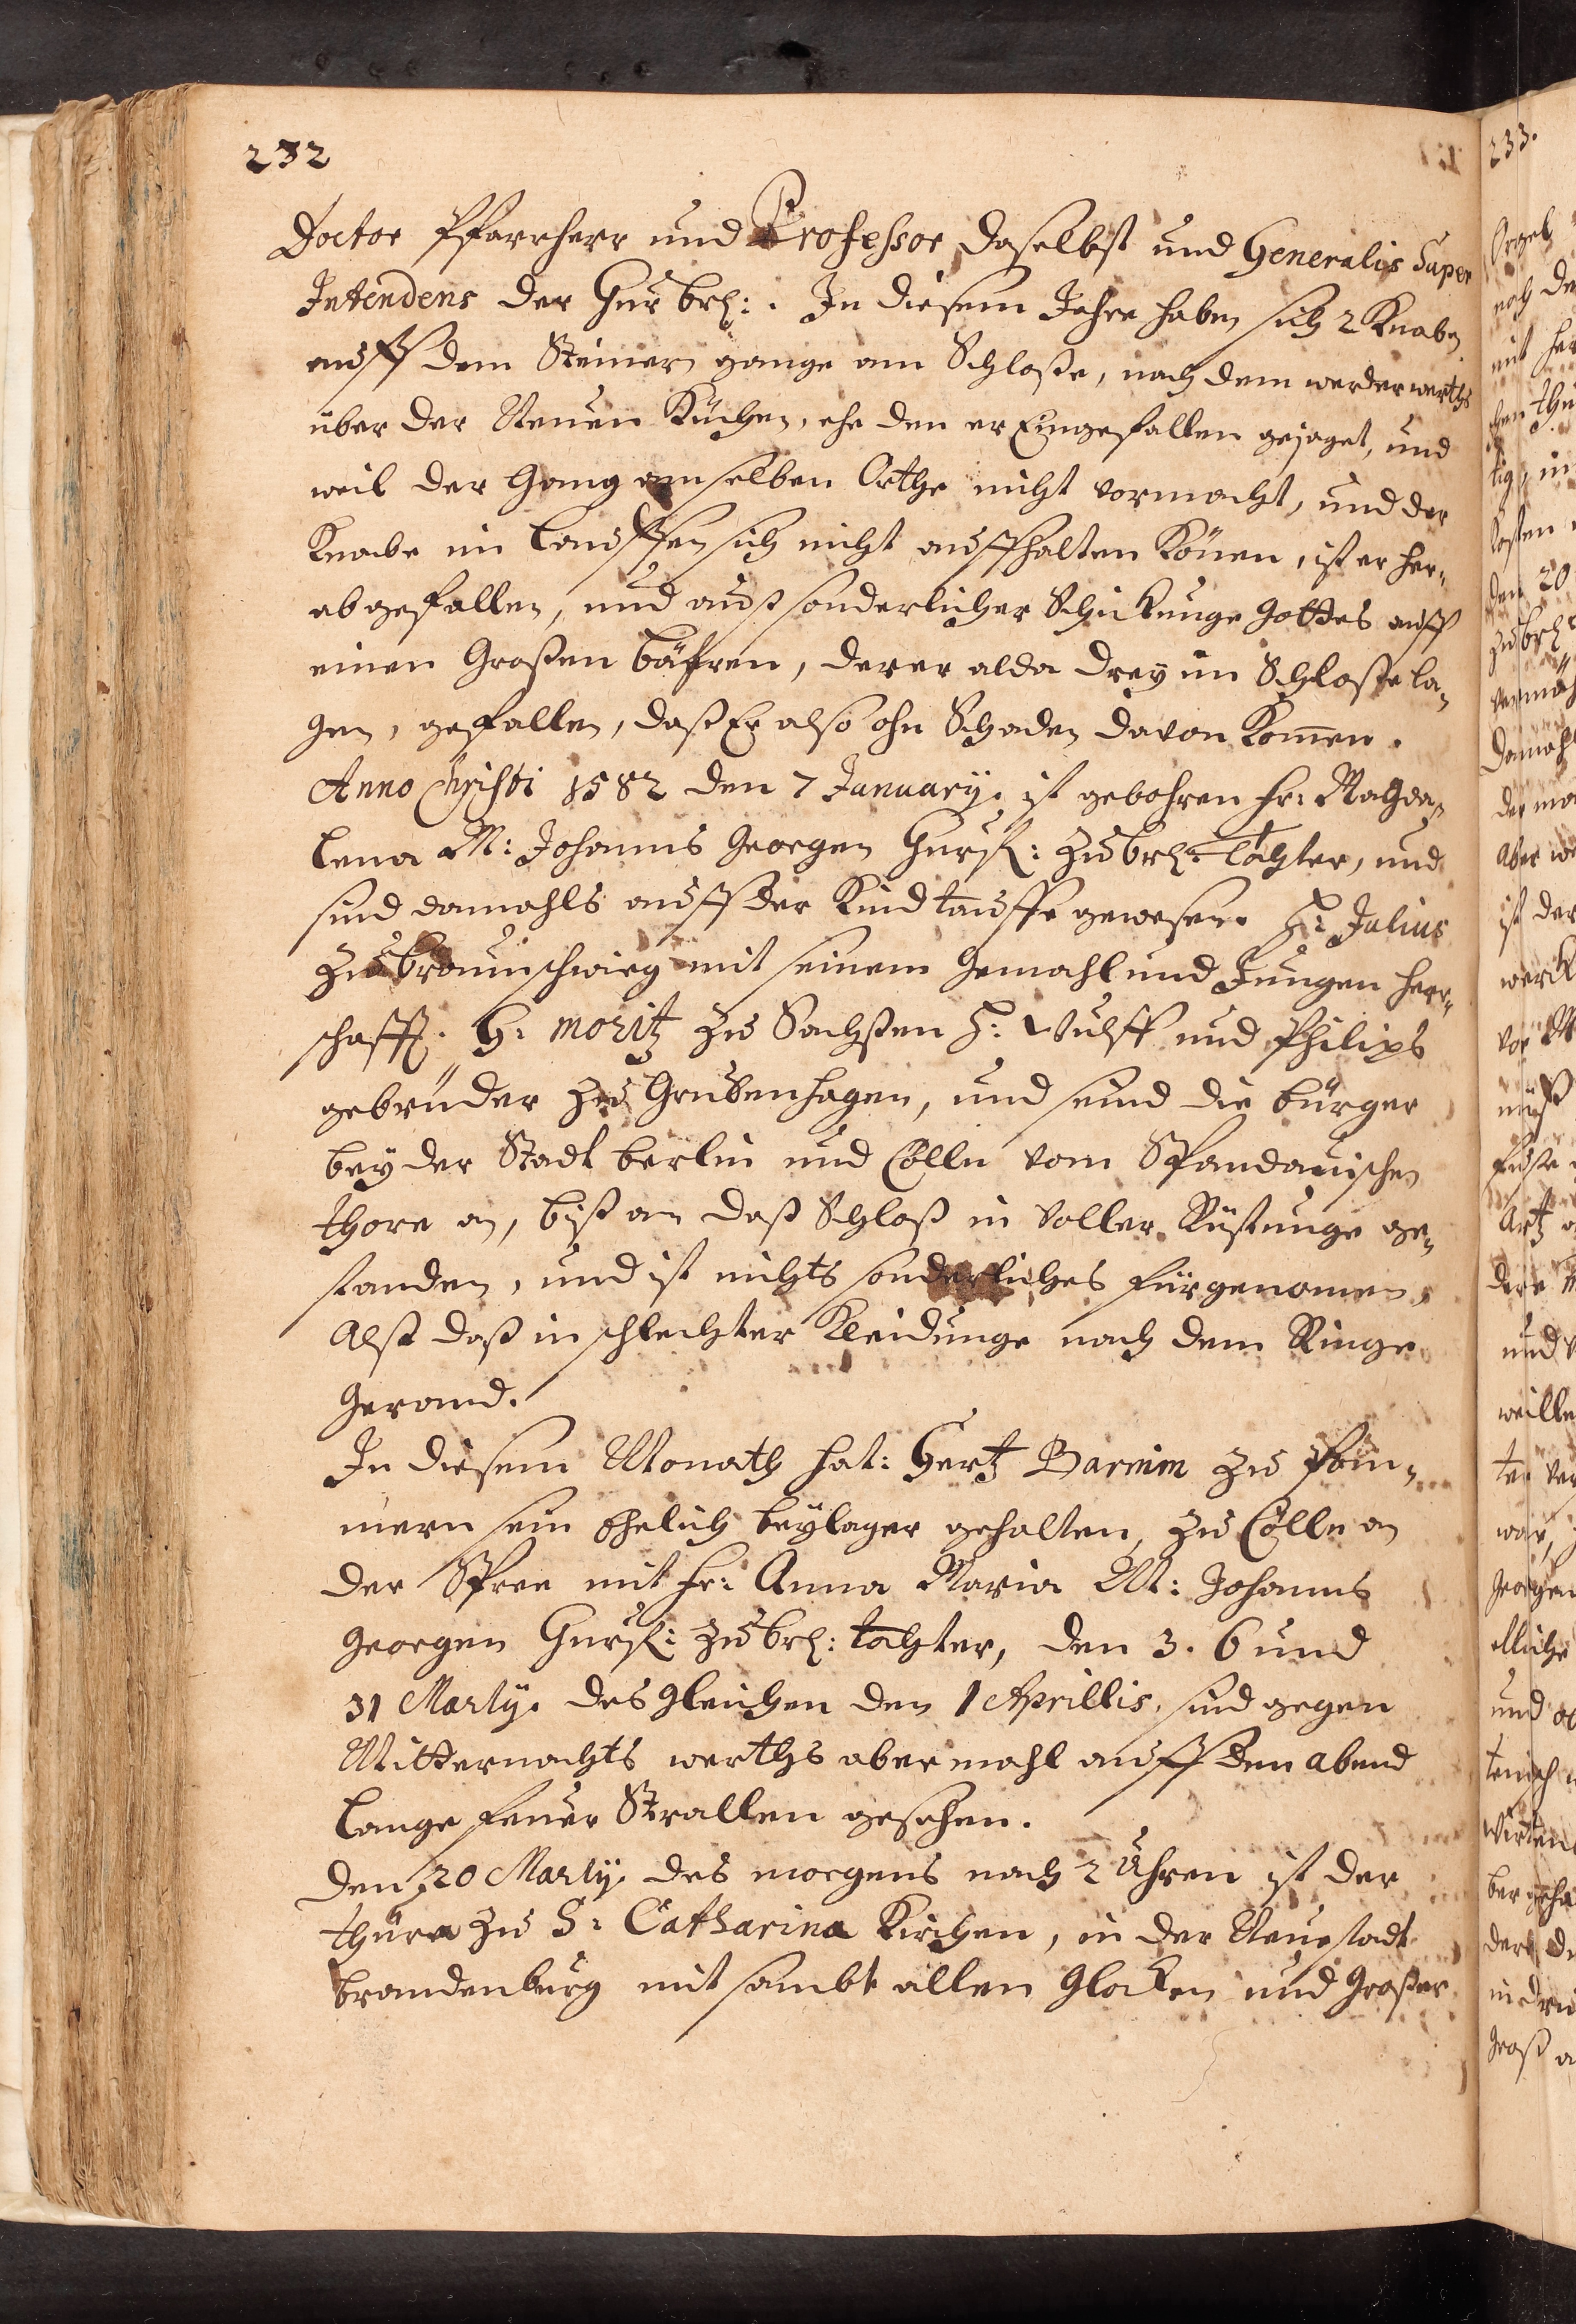 232
Doctor Pfarrherr und Professor daselbst und Generalis Super
Intendens der Chur brh: . In diesem Jahre haben sich 2 Knaben
auff dem Steinern gange am Schloße, nach dem werderwerths
über der Neuen Küchen, ehe den er Eingefallen gejaget, und
weil der Gang am selben Orthe nicht vormacht, und der
Knabe im Lauffen sich nicht auffhalten Könen, ist er her„
ab gefallen, und auß sonderlicher Schickunge Gottes auff
einen Großen Bähren, derer alda drey im Schloße la„
gen, gefallen, daß Er also ohn Schaden davon Komen.
Anno Christi 1582 den 7 January. ist gebohren fr: Magda„
lena M: Johanns Georgen Churf: zu brh: Tochter, und
sind damahls auff der Kindtauffe gewesen. H: Julius
zu Braunschwieg mit seinem Gemahl und Jungen Herr„
schafft. H: moritz zu Sachßen H: Wulff und Philips
gebrüder zu Grubenhagen, und seind die bürger
beyder Stadt berlin und Cölln vom Spandauischen
thore an, biß an daß Schloß in voller Rüstunge ge„
standen, und ist nichts sonderliches fürgenomen,
Alß daß in schlechter Kleidunge nach dem Ringe
Gerand.
In diesem Monath hat: Hertz Barnim zu Pom„
mern sein Ehelich beylager gehalten, zu Cölln an
der Spree mit fr: Anna Maria M: Johanns
Georgen Churf: zu brh: tochter, den 3. 6 und
31 Marty. desgleichen den 1 Aprillis. sind gegen
Mitternachts werths abermahl auff den abend
lange feuer Strallen gesehen.
Den 20 Marty. des morgens nach 2 Uhren ist der
thürn zu S: Catharina Kirchen, in der Neuestadt
brandenburg mit sambt allen Glocken und Großer
233.